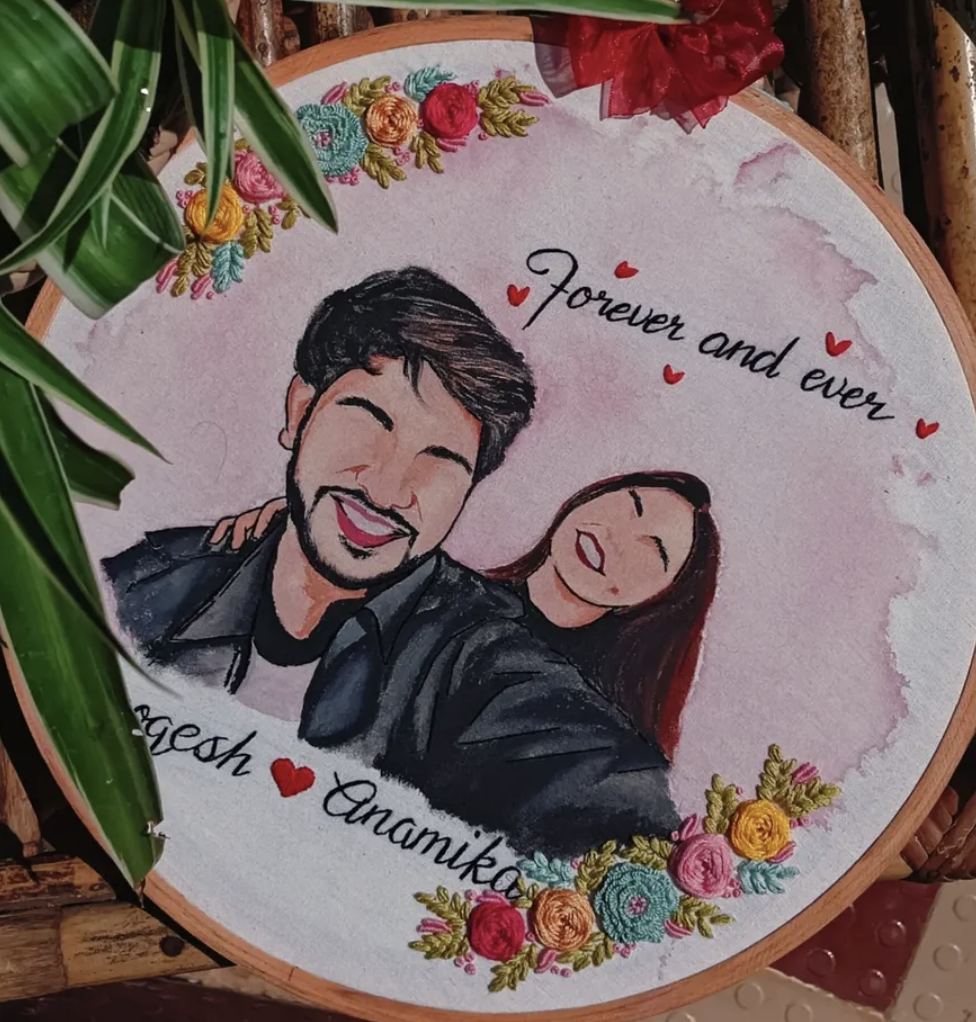 Forever and ever
ogesh ❤ Anamika